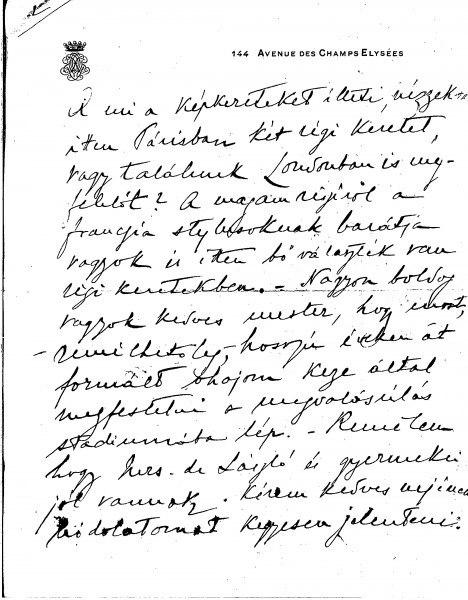 144 AVENUE DES CHAMPS ELYSÉES
A mi a képkereteket illeti, végyek
itten Párisban két régi keretet,
vagy találunk Londonban is meg-
felelőt? A magam részéről a
francia stylusoknak barátja
vagyok és itten bő választék van
régi keretekben. – Nagyon boldog
vagyok kedves mester, hogy most,
– remélhetőleg, – hosszú éveken át
formált óhajom keze által
megfestetni a megvalósulás
stádiumába lép. – Remélem
hogy Mrs. de László és gyermekei
jól vannak. Kérem kedves nejének
hódolatomat kegyesen jelenteni.